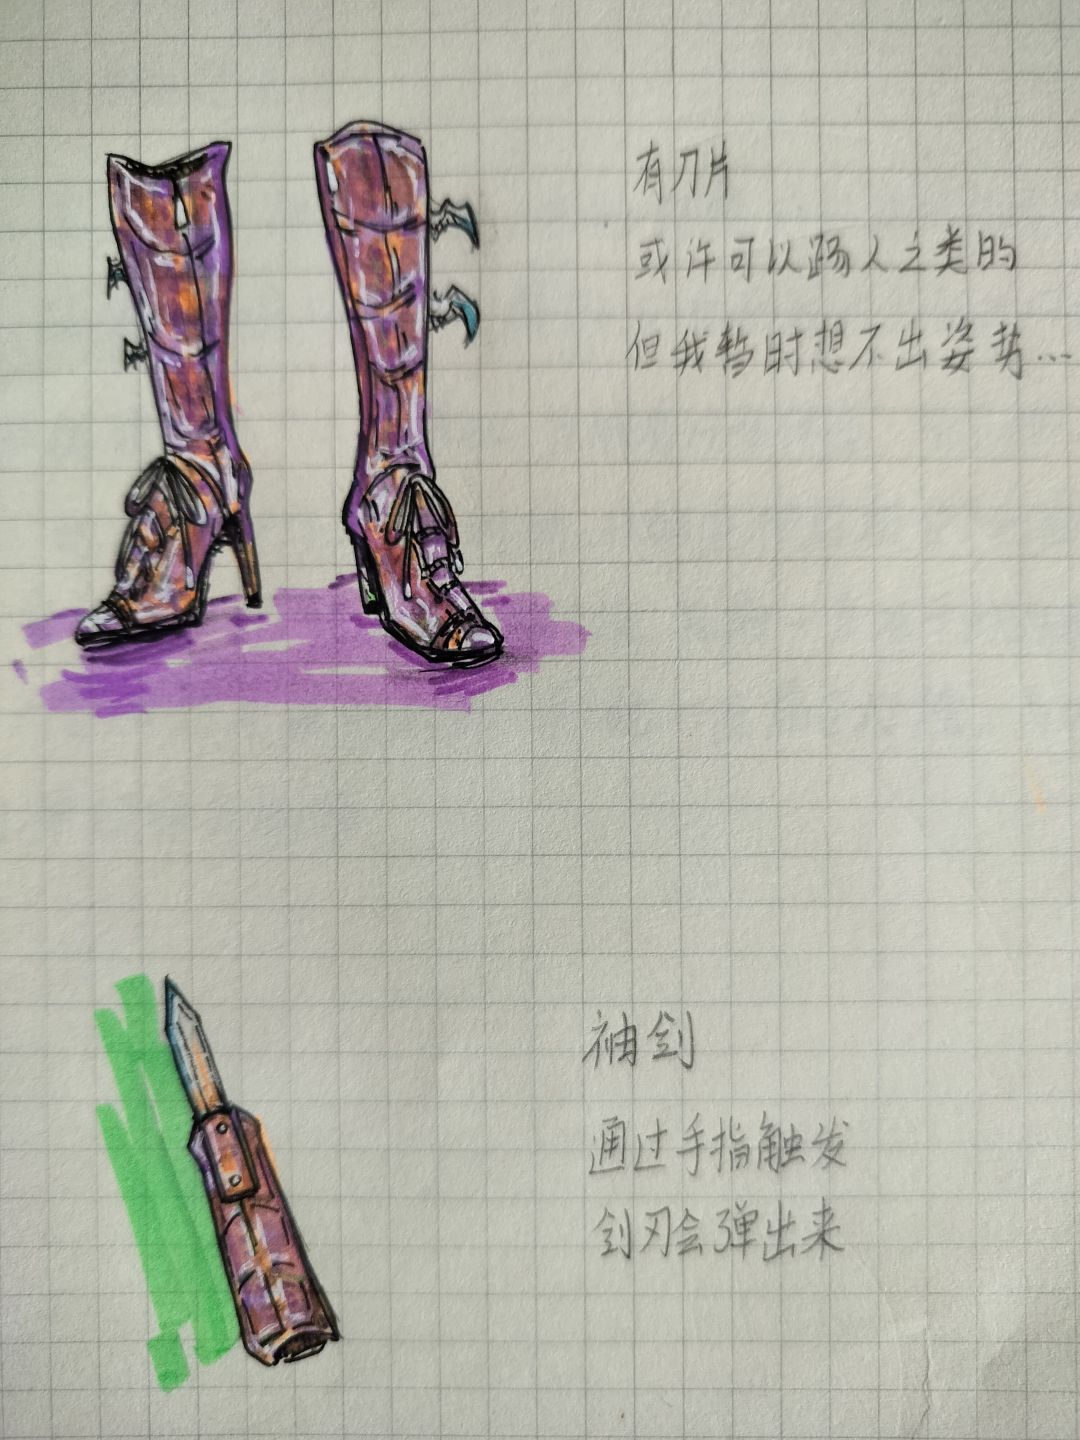 有刀片
或许可以踢人之类的
但我暂时想不出姿势...
袖剑
通过手指触发
剑刃会弹出来